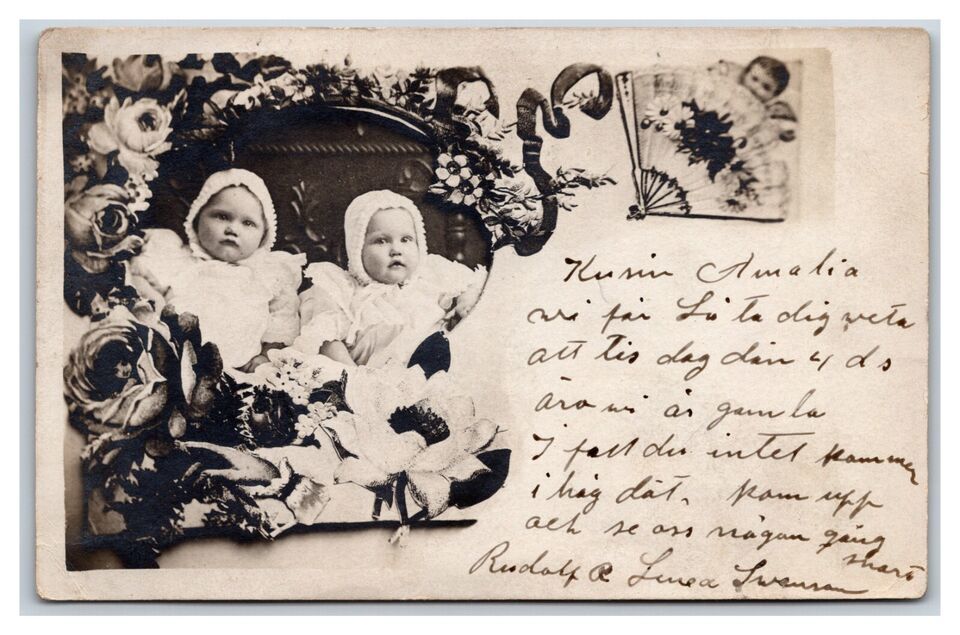 Kusin Amalia
vi får Lå ta dig veta
att tis dag dän 4 ds
äro vi år gamla
I fall du intet kommer
i håg dät. kom upp
och se oss någon gång
snart
Rudolf & Linea Swenson